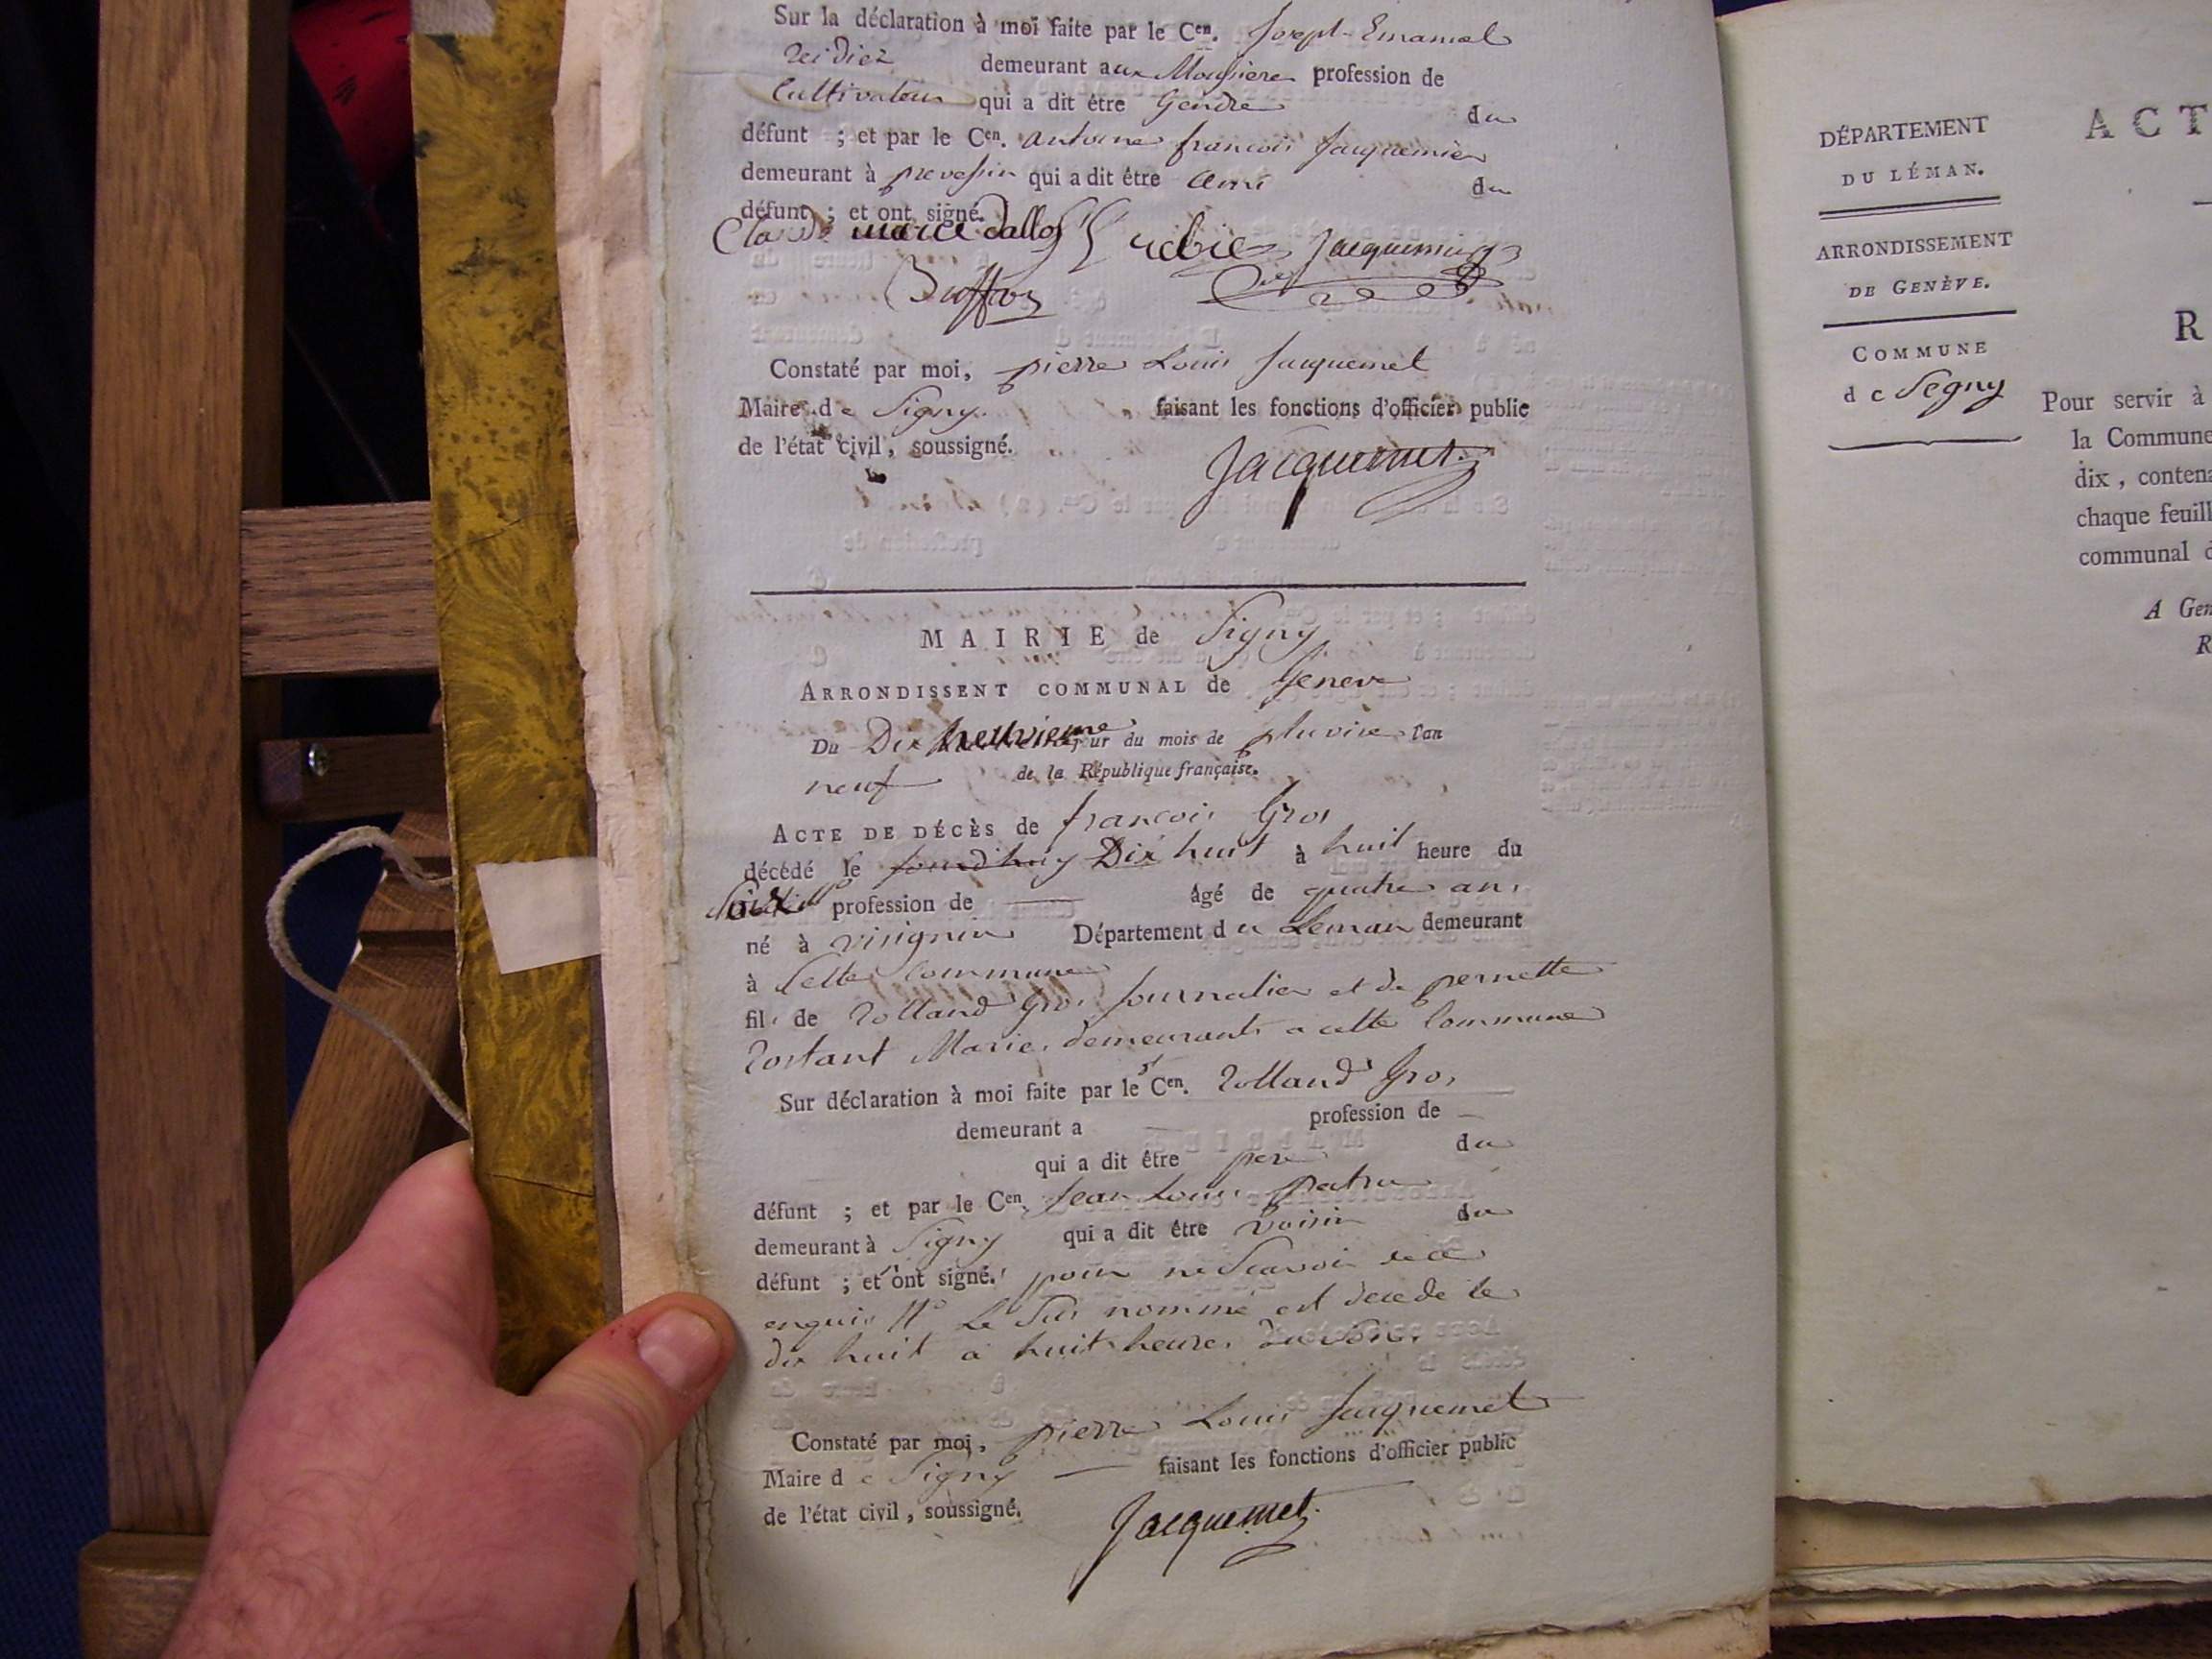 Sur la déclaration à moi faite par le Cen. Joseph Emanuel
demeurant aux profession de
Cultivateur qui a dit être Gendre du
défunt ; et par le Cen. antoine francois Jacquemier
demeurant à prevesin qui a dit être ami du
défunt ; et ont signé.
Claude marie dallos Jacquemier
Constaté par moi, pierre Louis Jacquemet
Maire de Signy faisant les fonctions d'officier public
de l'état civil, soussigné.
Jacquemet
MAIRIE de Signy
ARRONDISSENT COMMUNAL de Geneve
Du Dix neuvieme jour du mois de pluviose l'an
neuf de la République française.
ACTE DE DÉCÈS de francois Gros
décédé le Dix huit à huit heure du
profession de — âgé de quatre ans
né à Département du Leman demeurant
à Cette Commune
fils de Rolland Gros Journalier et de pernette
Costant Marie demeurants a cette Commune
Sur déclaration à moi faite par le Cen. Rolland Gros
demeurant a — profession de —
qui a dit être pere du
défunt ; et par le Cen. Jean Louis patru
demeurant à Signy qui a dit être voisin du
défunt ; et ont signé. pour ne Scavoir de ce
enquis Le Sus nommé est decede le
dix huit a huit heures du Soir.
Constaté par moi, pierre Louis Jacquemet
Maire de Signy — faisant les fonctions d'officier public
de l'état civil, soussigné.
Jacquemet
DÉPARTEMENT
DU LÉMAN.
ARRONDISSEMENT
DE GENÈVE.
COMMUNE
de Segny
ACT
R
Pour servir à
la Commune
dix, conten
chaque feuil
communal d
A Gen
R